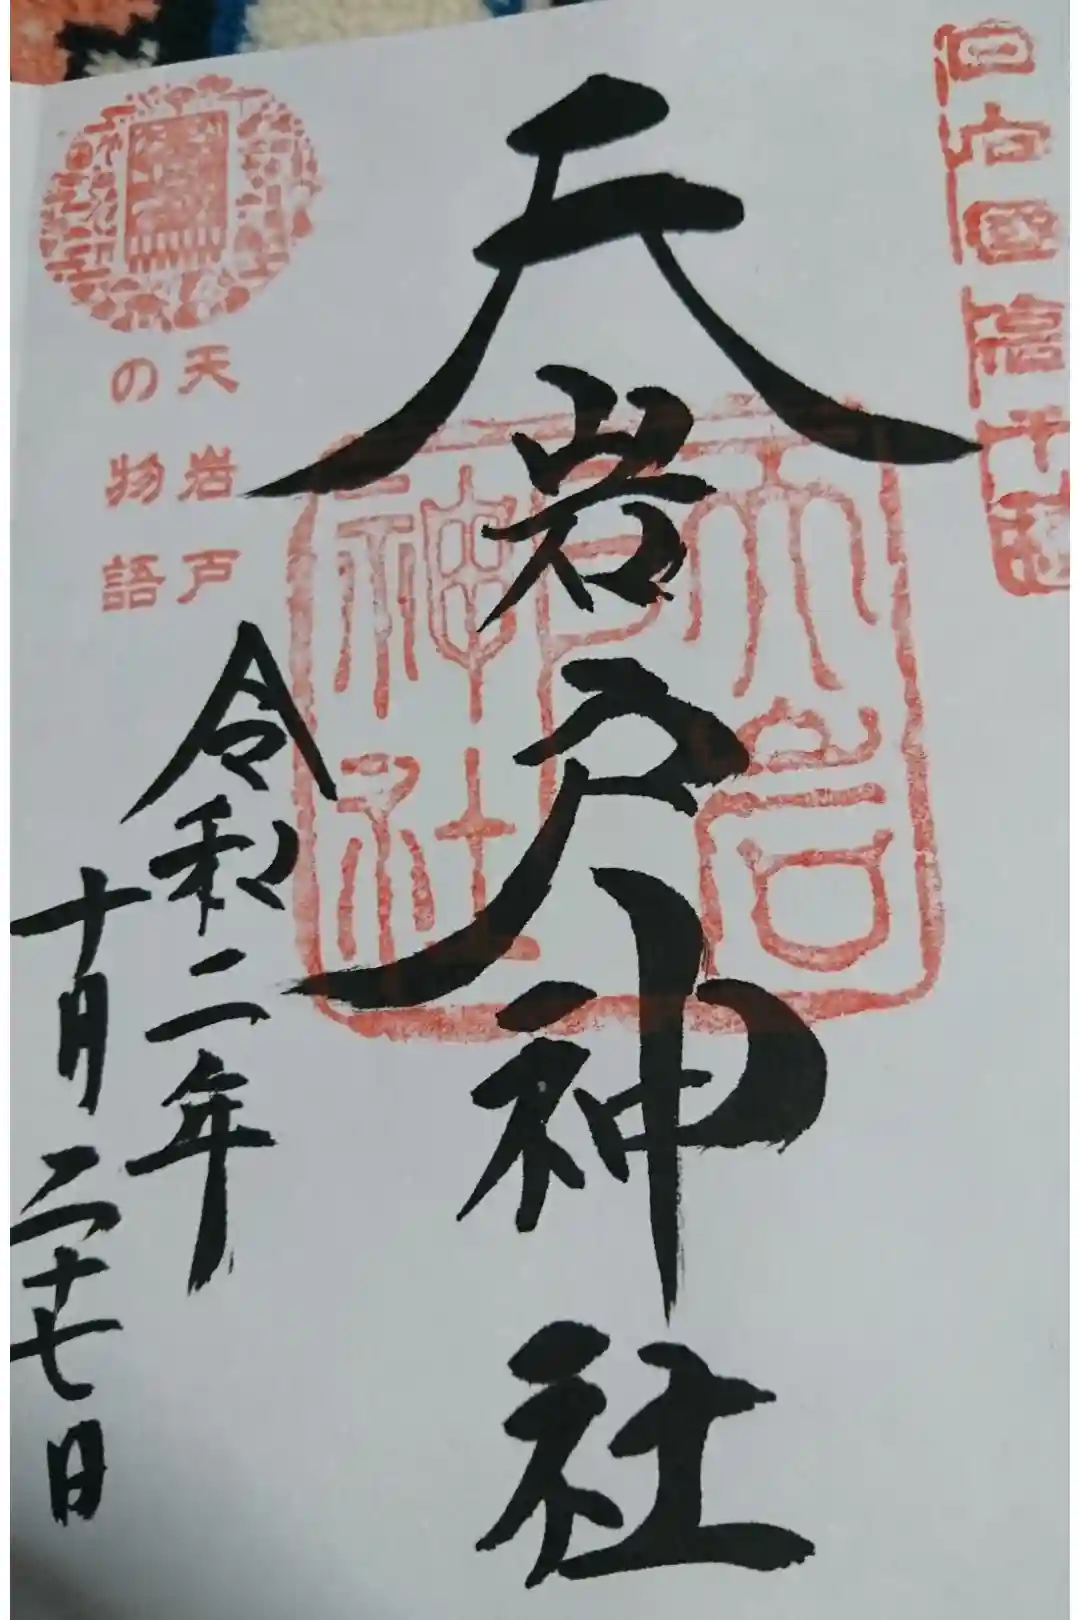 日向國高千穂
天岩戸神社
天岩戸神社
天岩戸
の物語
令和二年
十月二十七日